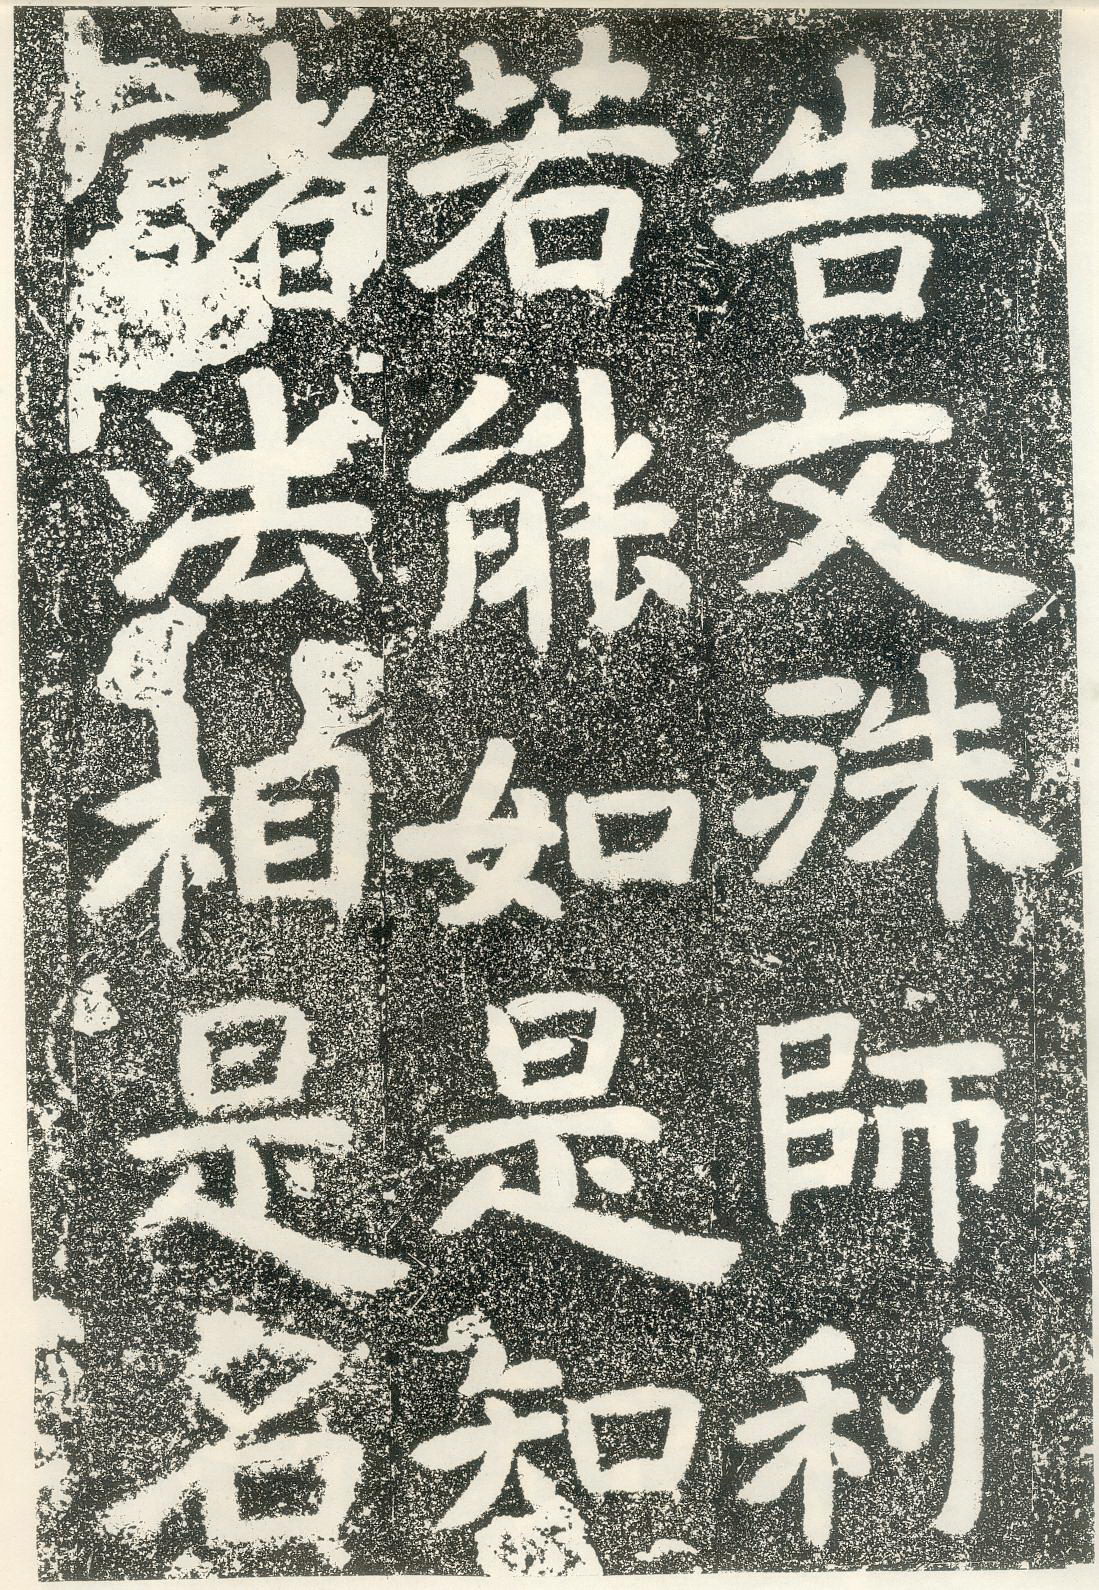 告文殊師利
若能如是知
諸法相是名